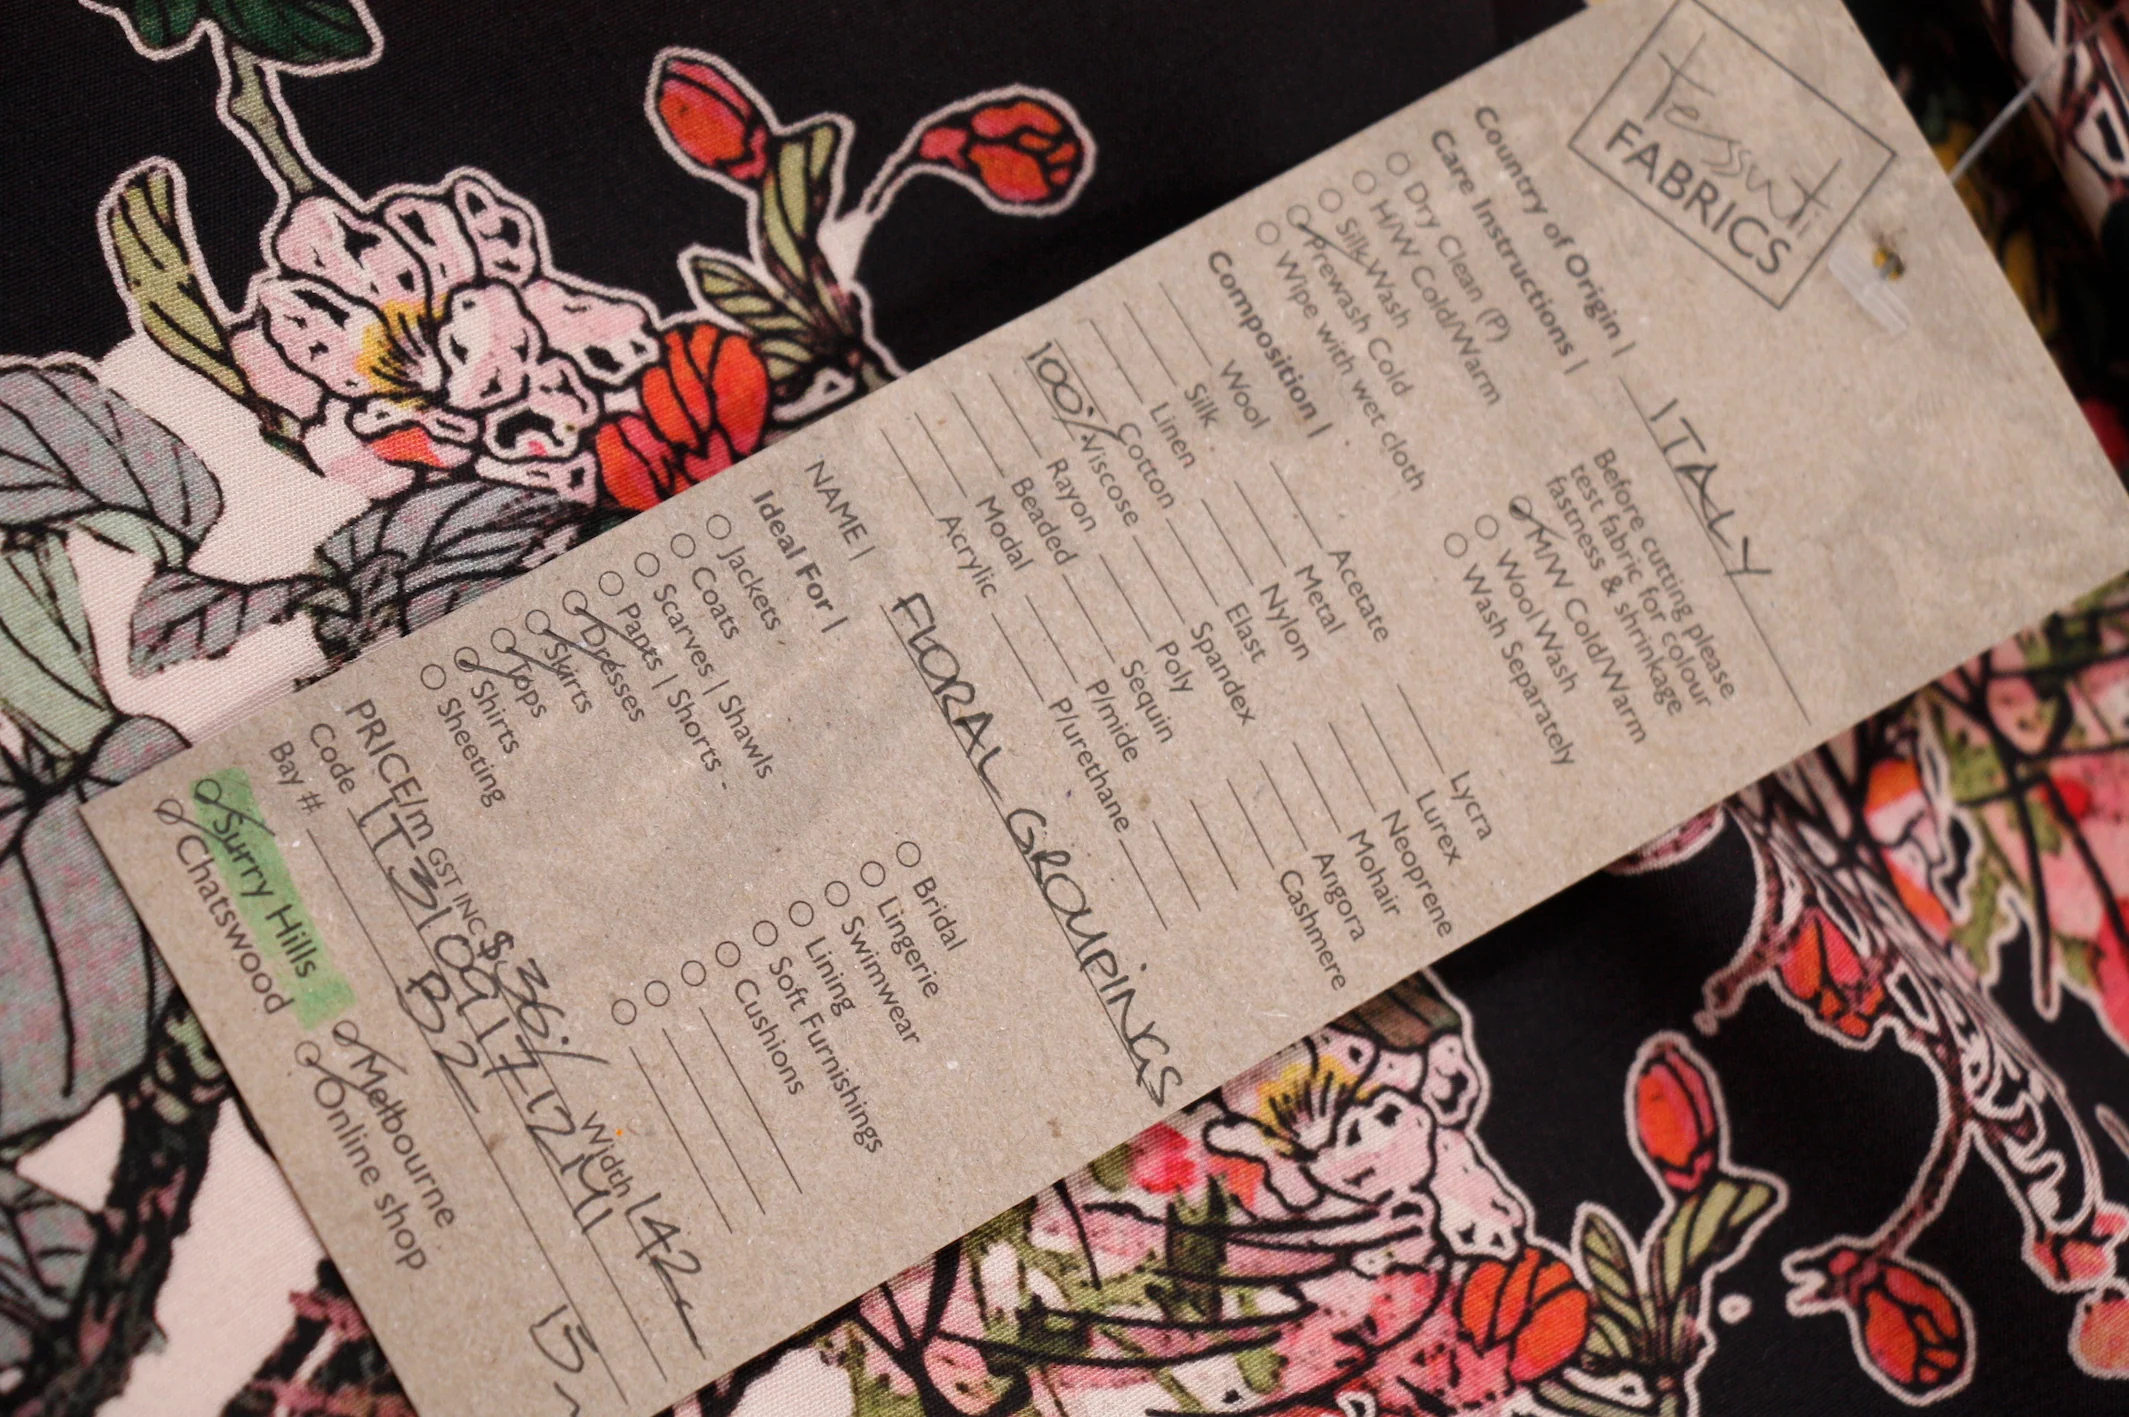 Tessuti
FABRICS
Country of Origin | ITALY
Care Instructions |
Dry Clean (P)
H/W Cold/Warm
Silk Wash
Prewash Cold
Wipe with wet cloth
Before cutting please
test fabric for colour
fastness & shrinkage
M/W Cold/Warm
Wool Wash
Wash Separately
Composition |
Wool
Silk
Linen
Cotton
100% Viscose
Rayon
Beaded
Modal
Acrylic
Acetate
Metal
Nylon
Elast
Spandex
Poly
Sequin
P/mide
P/urethane
Lycra
Lurex
Neoprene
Mohair
Angora
Cashmere
NAME | FLORAL GROUPINGS
Ideal For |
Jackets
Coats
Scarves | Shawls
Pants | Shorts
Dresses
Skirts
Tops
Shirts
Sheeting
Bridal
Lingerie
Swimwear
Lining
Soft Furnishings
Cushions
PRICE/m GST INC $36 Width 142
Code
Bay # B2
Surry Hills
Chatswood
Melbourne
Online shop